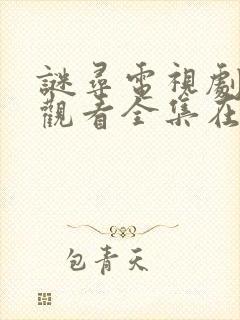 謎尋電視劇
觀看全集在
包青天